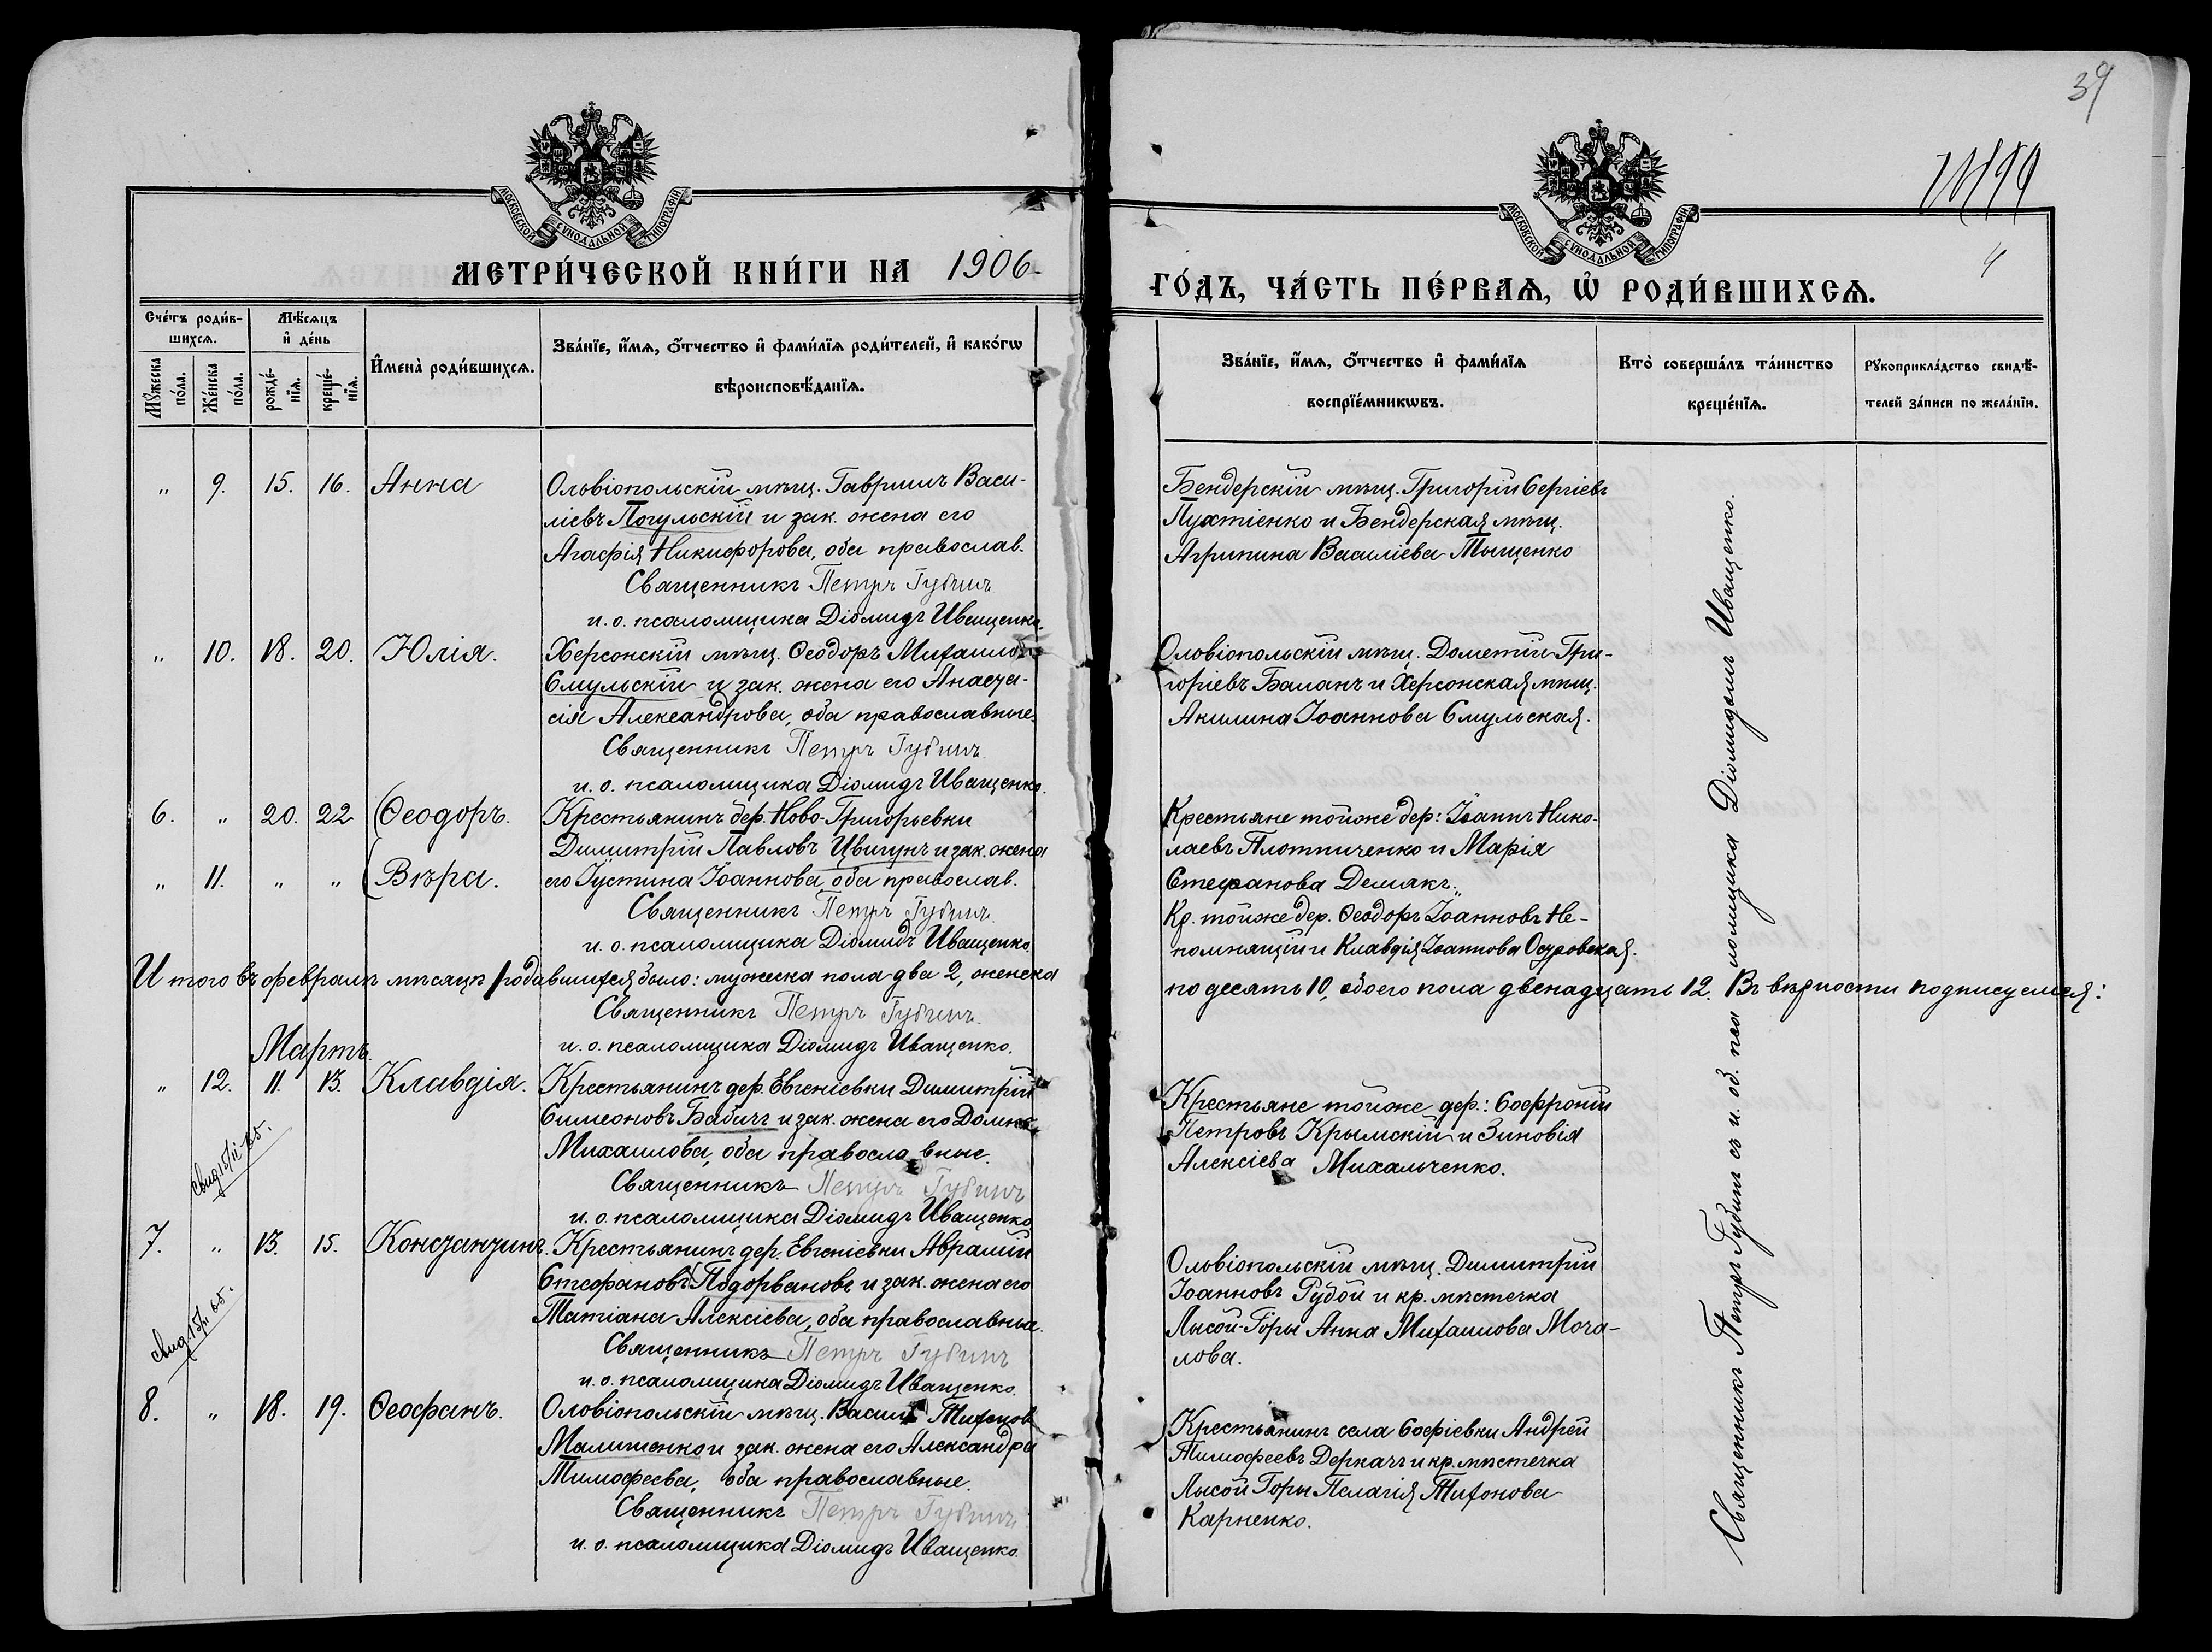 39
МОСКОВСКОЙ СУНОДАЛЬНОЙ ТИПОГРАФІИ
МОСКОВСКОЙ СУНОДАЛЬНОЙ ТИПОГРАФІИ
МЕТРИ́ЧЕСКОЙ КНИ́ГИ НА 1906
ГО́ДЪ, ЧА́СТЬ ПЕ́РВАѦ, Ѡ҆ РОДИ́ВШИХСѦ.
4
Сче́тъ роди́в-
шихсѧ.
Мꙋ́жеска по́ла.
Же́нска по́ла.
Мѣ́сѧцъ
и҆ де́нь
рожде́-
нїѧ.
креще́-
нїѧ.
И҆мена̀ роди́вшихсѧ.
Зва́нїе, и҆́мѧ, ѻ҆́тчество и҆ фами́лїѧ роди́телей, и҆ како́гѡ
вѣроисповѣ́данїѧ.
Зва́нїе, и҆́мѧ, ѻ҆́тчество и҆ фами́лїѧ
воспрїе́мникѡвъ.
Кто̀ соверша́лъ та́инство
креще́нїѧ.
Рꙋкоприкла́дство свидѣ́-
телей за́писи по жела́нїю.
„ 9. 15. 16. Анна
Ольвіопольскій мѣщ. Гавріилъ Васи-
ліевъ Погульскій и зак. жена его
Агафія Никифорова, оба православ.
Священникъ Петръ Губинъ
и. о. псаломщика Діомидъ Иващенко.
Бендерскій мѣщ. Григорій Сергіевъ
Пухтіенко и Бендерская мѣщ.
Агрипина Василіева Тыщенко
„ 10. 18. 20. Юлія.
Херсонскій мѣщ. Ѳеодоръ Михаиловъ
Смульскій и зак. жена его Анаста-
сія Александрова, оба православные.
Священникъ Петръ Губинъ
и. о. псаломщика Діомидъ Иващенко.
Ольвіопольскій мѣщ. Дометій Гри-
горіевъ Баланъ и Херсонская мѣщ.
Акилина Іоаннова Смульская.
6. „ 20. 22 Ѳеодоръ.
„ 11. „ „ Вѣра.
Крестьянинъ дер. Ново-Григорьевки
Димитрій Павловъ Цвигунъ и зак. жена
его Іустина Іоаннова, оба православ.
Священникъ Петръ Губинъ
и. о. псаломщика Діомидъ Иващенко.
Крестьяне тойже дер: Іоаннъ Нико-
лаевъ Плотниченко и Марія
Стефанова Демякъ.
Кр. тойже дер. Ѳеодоръ Іоанновъ Не-
помнящій и Клавдія Іоаннова Островская.
Итого въ февралѣ мѣсяцѣ родившихся было: мужеска пола два 2, женска
по десять 10, обоего пола двенадцать 12. Въ вѣрности подписуемся:
Священникъ Петръ Губинъ.
и. о. псаломщика Діомидъ Иващенко.
Мартъ.
„ 12. 11. 13. Клавдія.
Крестьянинъ дер. Евгеніевки Димитрій
Симеоновъ Бабичъ и зак. жена его Домна
Михаилова, оба православные.
Священникъ Петръ Губинъ
и. о. псаломщика Діомидъ Иващенко
Крестьяне тойже дер.: Софроній
Петровъ Крымскій и Зиновія
Алексіева Михальченко.
7. „ 13. 15. Константинъ.
Крестьянинъ дер. Евгеніевки Аврамій
Стефановъ Подорвановъ и зак. жена его
Татіана Алексіева, оба православные.
Священникъ Петръ Губинъ
и. о. псаломщика Діомидъ Иващенко.
Ольвіопольскій мѣщ. Димитрій
Іоанновъ Рудой и кр. мѣстечка
Лысой-Горы Анна Михаилова Моча-
лова.
8. „ 18. 19. Ѳеофанъ.
Ольвіопольскій мѣщ. Василій Тихонов
Малишенко и зак. жена его Александра
Тимофеева, оба православные.
Священникъ Петръ Губинъ
и. о. псаломщика Діомидъ Иващенко.
Крестьянинъ села Софіевки Андрей
Тимофеевъ Деркачъ и кр. мѣстечка
Лысой Горы Пелагія Тихонова
Карненко.
Священникъ Петръ Губинъ съ и. об. псаломщика Діомидомъ Иващенко.